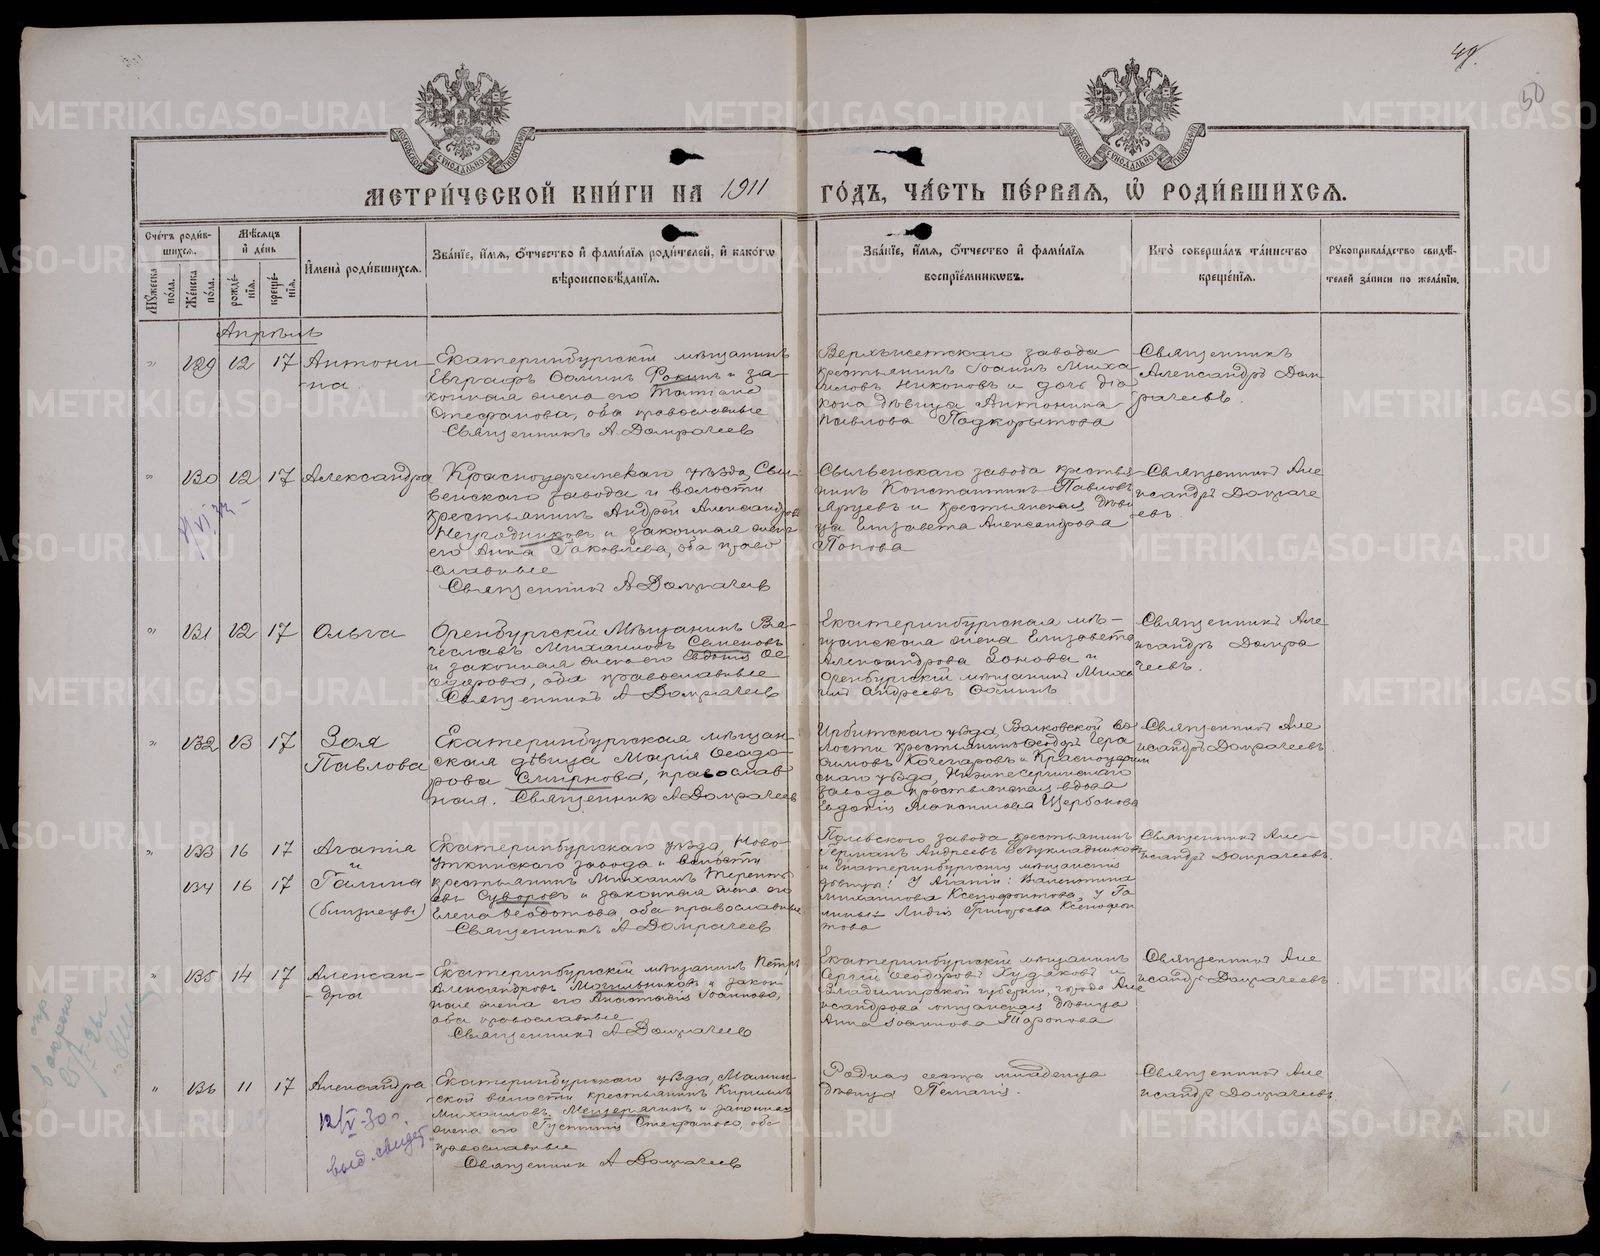 49.
50
МЕТРИ́ЧЕСКОЙ КНИ́ГИ НА 1911 ГО́ДЪ, ЧА́СТЬ ПЕ́РВАЯ, Ѡ РОДИ́ВШИХСЯ.
Сче́тъ роди́в-
шихся.
Му́жеска по́ла.
Же́нска по́ла.
Мѣ́сяцъ
и де́нь
рожде́-
нія.
креще́-
нія.
Имена̀ роди́вшихся.
Зва́ніе, и́мя, о́тчество и фами́лія роди́телей, и како́гѡ
вѣроисповѣ́данія.
Зва́ніе, и́мя, о́тчество и фами́лія
воспріе́мникѡвъ.
Кто̀ соверша́лъ та́инство
креще́нія.
Рукоприкла́дство свидѣ́-
телей за́писи по жела́нію.
Апрѣль
" 129 12 17 Антони-
на
Екатеринбургскій мѣщанинъ
Евграфъ Ѳоминъ Фокинъ и за-
конная жена его Татіана
Стефанова, оба православные
Священникъ А Домрачеев
Верхъисетскаго завода
крестьянинъ Іоаннъ Миха
иловъ Никоновъ и дочь діа
кона дѣвица Антонина
Павлова Подкорытова
Священникъ
Александръ Дом-
рачеевъ.
" 130 12 17 Александра
Красноуфимскаго уѣзда, Сыл-
венскаго завода и волости
крестьянинъ Андрей Александров
Неугодниковъ и законная жена
его Анна Іаковлева, оба право
славные
Священникъ А Домрачеев
Сылвенскаго завода крестья
нинъ Константинъ Павловъ
Яруевъ и крестьянская дѣви
ца Елизавета Александрова
Попова
Священникъ Але
ксандръ Домраче
евъ.
" 131 12 17 Ольга
Оренбургскій Мѣщанинъ Вя-
чеславъ Михаиловъ Семеновъ
и законная жена его Евдокія Ѳе
одорова, оба православные
Священникъ А Домрачеев
Екатеринбургская мѣ-
щанская жена Елизавета
Александрова Зонова и
Оренбургскій мѣщанинъ Миха
илъ Андреевъ Ѳоминъ
Священникъ Але
ксандръ Домра
чеевъ.
" 132 13 17 Зоя
Павлова
Екатеринбургская мѣщан-
ская дѣвица Марія Ѳеодо-
рова Смирнова, православ
ная. Священник А Домрачеев
Ирбитскаго уѣзда, Волковской во
лости крестьянинъ Ѳеодоръ Гера
симовъ Кочегаровъ и Красноуфим
скаго уѣзда, Нижнесергинскаго
завода крестьянская вдова
Евдокія Максимова Щербакова
Священникъ Але
ксандръ Домрачеевъ
" 133 16 17 Агапія
и
134 16 17 Галина
(близнецы)
Екатеринбургскаго уѣзда, Ново-
уткинскаго завода и волости
крестьянинъ Михаилъ Терентъ
евъ Суворовъ и законная жена его
Елена Ѳеодотова, оба православные
Священникъ А Домрачеев
Полевского завода крестьянинъ
Германъ Андреевъ
и Екатеринбургскія мѣщанскія
дѣвицы: У Агапіи: Валентина
Михаилова Ксенофонтова, у Га
лины Лидія Григорьева Ксенофон
това
Священникъ Але-
ксандръ Домрачеевъ.
" 135 14 17 Алексан-
дра
Екатеринбургскій мѣщанинъ Петръ
Александровъ Могильниковъ и закон
ная жена его Анастасія Іоаннова,
оба православные
Священникъ А Домрачеев
Екатеринбургскій мѣщанинъ
Сергій Ѳеодоровъ Худяковъ и
Владимірской губерніи, города Але
ксандрова мѣщанская дѣвица
Анна Іоаннова Торопова
Священникъ Але
ксандръ Домрачеевъ
" 136 11 17 Александра
12/V-30 г.
выд. свидет.
Екатеринбургскаго уѣзда, Мамин-
ской волости крестьянинъ Кириллъ
Михаиловъ Мещерягинъ и законная
жена его Іустинія Стефанова, оба
православные
Священник А Домрачеев
Родная сестра младенца
дѣвица Пелагія.
Священникъ Але
ксандръ Домрачеевъ
METRIKI.GASO-URAL.RU